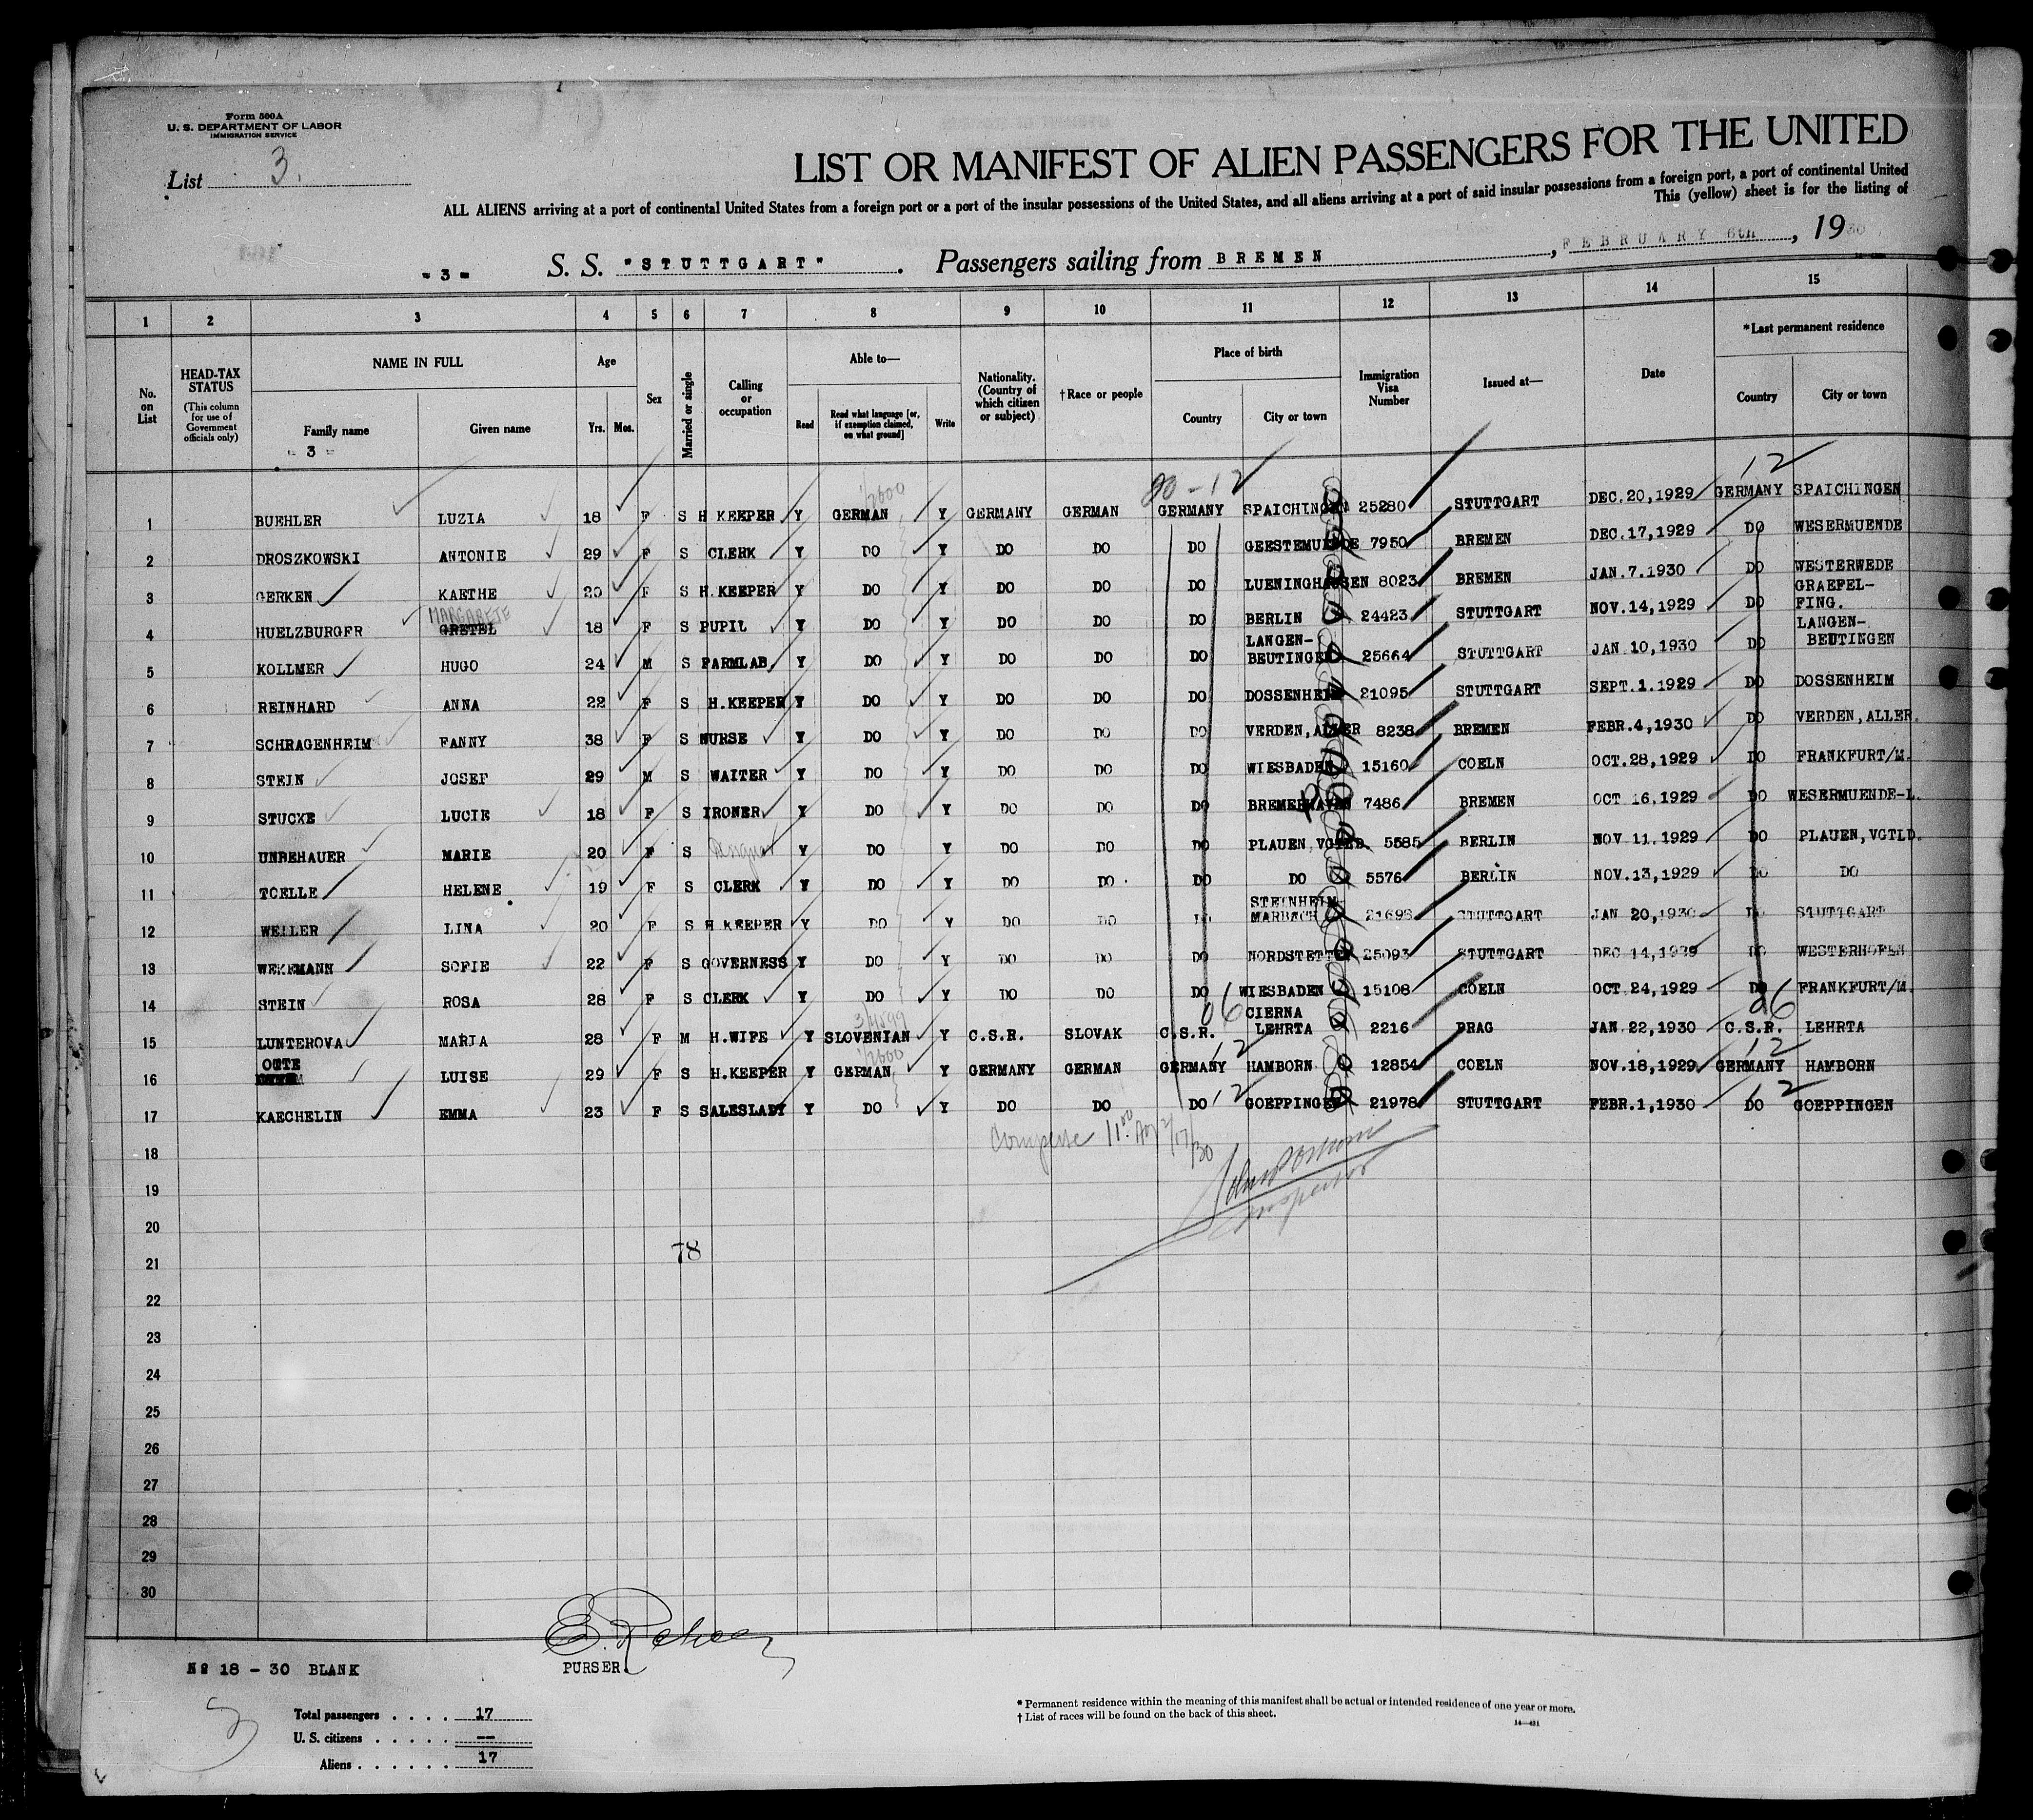 Form 500A
U. S. DEPARTMENT OF LABOR
IMMIGRATION SERVICE
List 3.
LIST OR MANIFEST OF ALIEN PASSENGERS FOR THE UNITED
ALL ALIENS arriving at a port of continental United States from a foreign port or a port of the insular possessions of the United States, and all aliens arriving at a port of said insular possessions from a foreign port, a port of continental United
This (yellow) sheet is for the listing of
- 3 - S. S. "STUTTGART" . Passengers sailing from BREMEN , FEBRUARY 6th , 1930
1 2 3 4 5 6 7 8 9 10 11 12 13 14 15
No. on List
HEAD-TAX STATUS (This column for use of Government officials only)
NAME IN FULL
Family name
- 3 -
Given name
Age
Yrs. Mos.
Sex
Married or single
Calling or occupation
Able to—
Read
Read what language [or, if exemption claimed, on what ground]
Write
Nationality. (Country of which citizen or subject)
† Race or people
Place of birth
Country
City or town
Immigration Visa Number
Issued at—
Date
*Last permanent residence
Country
City or town
12
1 BUEHLER LUZIA 18 F S H KEEPER Y GERMAN Y GERMANY GERMAN GERMANY SPAICHINGEN 25280 STUTTGART DEC.20,1929 GERMANY SPAICHINGEN
2 DROSZKOWSKI ANTONIE 29 F S CLERK Y DO Y DO DO DO GEESTEMUENDE 7950 BREMEN DEC.17,1929 DO WESERMUENDE
3 GERKEN KAETHE 20 F S H.KEEPER Y DO Y DO DO DO LUENINGHAUSEN 8023 BREMEN JAN.7.1930 DO WESTERWEDE
MARGARETE
4 HUELZBURGER GRETEL 18 F S PUPIL Y DO Y DO DO DO BERLIN 24423 STUTTGART NOV.14,1929 DO GRAEFEL-FING.
5 KOLLMER HUGO 24 M S FARMLAB. Y DO Y DO DO DO LANGEN-BEUTINGEN 25664 STUTTGART JAN 10,1930 DO LANGEN-BEUTINGEN
6 REINHARD ANNA 22 F S H.KEEPER Y DO Y DO DO DO DOSSENHEIM 21095 STUTTGART SEPT.1.1929 DO DOSSENHEIM
7 SCHRAGENHEIM FANNY 38 F S NURSE Y DO Y DO DO DO VERDEN,ALLER 8238 BREMEN FEBR.4,1930 DO VERDEN,ALLER.
8 STEIN JOSEF 29 M S WAITER Y DO Y DO DO DO WIESBADEN 15160 COELN OCT.28,1929 DO FRANKFURT/M.
9 STUCKE LUCIE 18 F S IRONER Y DO Y DO DO DO BREMERHAVEN 7486 BREMEN OCT 16,1929 DO WESERMUENDE-L.
10 UNBEHAUER MARIE 20 F S Y DO Y DO DO DO PLAUEN,VGTLD. 5585 BERLIN NOV 11.1929 DO PLAUEN,VGTLD.
11 TOELLE HELENE 19 F S CLERK Y DO Y DO DO DO DO 5576 BERLIN NOV.13,1929 DO DO
12 WEILER LINA 20 F S H KEEPER Y DO Y DO DO DO STEINHEIM-MARBACH STUTTGART JAN 20,1930 DO STUTTGART
13 SOFIE 22 F S GOVERNESS Y DO Y DO DO DO NORDSTETTEN 25093 STUTTGART DEC 14,1929 DO WESTERHOFEN
14 STEIN ROSA 28 F S CLERK Y DO Y DO DO DO WIESBADEN 15108 COELN OCT.24,1929 DO FRANKFURT/M.
06 06
15 LUNTEROVA MARIA 28 F M H.WIFE Y SLOVENIAN Y C.S.R. SLOVAK C.S.R. CIERNA LEHRTA 2216 PRAG JAN.22,1930 C.S.R. LEHRTA
12 12
16 OTTE LUISE 29 F S H.KEEPER Y GERMAN Y GERMANY GERMAN GERMANY HAMBORN 12854 COELN NOV.18,1929 GERMANY HAMBORN
12 12
17 KAECHELIN EMMA 23 F S SALESLADY Y DO Y DO DO DO GOEPPINGEN 21978 STUTTGART FEBR.1,1930 DO GOEPPINGEN
18
19
20
78
21
22
23
24
25
26
27
28
29
30
PURSER.
No 18 - 30 BLANK
Total passengers . . . . 17
U. S. citizens . . . . . --
Aliens . . . . . . 17
* Permanent residence within the meaning of this manifest shall be actual or intended residence of one year or more.
† List of races will be found on the back of this sheet.